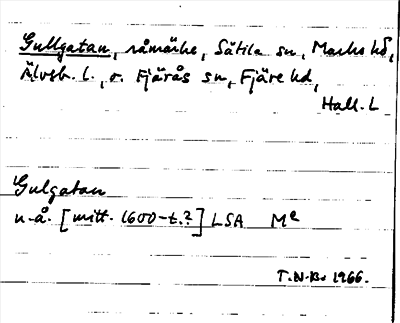 Gullgatan, råmärke, Sätila sn, Marks hd,
Älvsb. l., o. Fjärås sn, Fjäre hd,
Hall. l
Gulgatan
u.å. [mitt. 1600-t.?] LSA Mᵉ
T.N-Bs 1966.